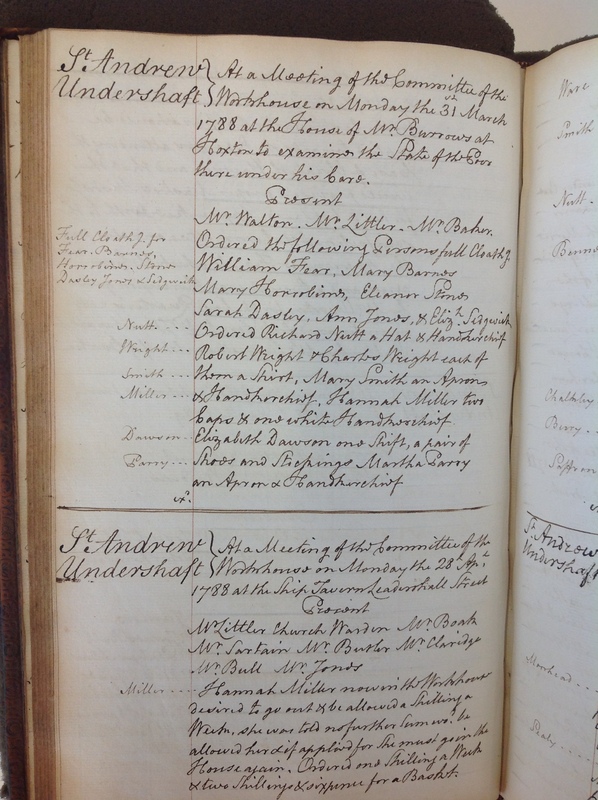 St Andrew
Undershaft
At a Meeting of the Committee of the
Workhouse on Monday the 31st March
1788 at the House of Mr Burrows at
Hoxton to examine the State of the Poor
there under his Care.
Present
Mr Walton. Mr Littler. Mr Baker.
Full Cloathg. for
Fear. Barnes.
Horrobines. Stone
Dasley Jones & Sedgwick
Ordered the following Persons full Cloathg.
William Fear, Mary Barnes
Mary Horrobines, Eleanor Stone
Sarah Dasley. Ann Jones, & Elizth Sedgwick
Nutt.... Ordered Richard Nutt a Hat & Handkerchief
Wright... Robert Wright & Charles Wright each of
Smith... them a Shirt, Mary Smith an Apron
Miller... & Handkerchief, Hannah Miller two
Caps & one white Handkerchief
Dawson.. Elizabeth Dawson one Shift, a pair of
Parry... Shoes and Stockings Martha Parry
an Apron & Handkerchief
exd.
St Andrew
Undershaft
At a Meeting of the Committee of the
Workhouse on Monday the 28 Apl.
1788 at the Ship Tavern Leadenhall Street
Present
Mr Littler Church Warden Mr Boak
Mr. Sartain Mr. Butler Mr. Claridge
Mr Bull Mr. Jones
Miller.... Hannah Miller now in the Workhouse
desired to go out & be allowed a Shilling a
Week, she was told no further Sum wod. be
allowed her & if applied for She must go in the
House again. Ordered one Shilling a Week
& two Shillings & sixpence for a Basket.
Ware
Smith
Nutt.
Chalkley
Berry..
Saffron
St Andrew
Undershaft
Morehead....